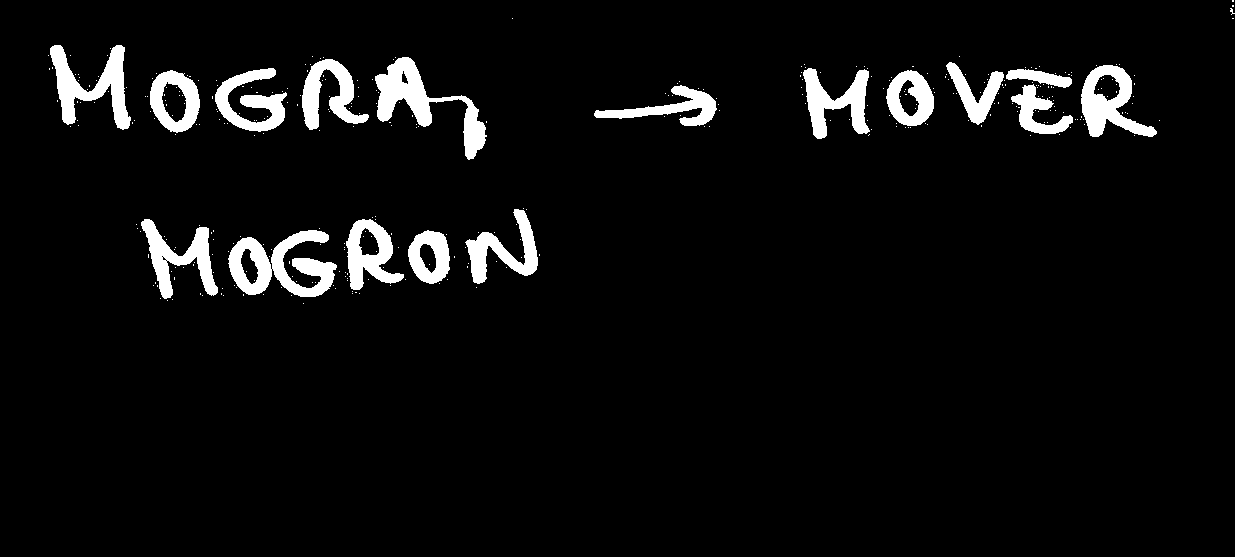 MOGRA, → MOVER
MOGRON